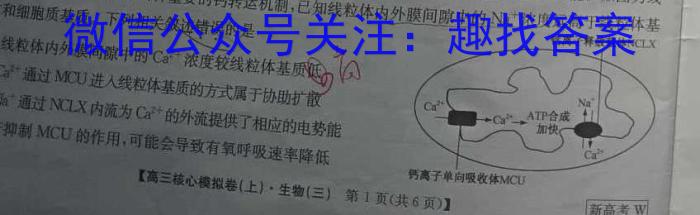 重要的钙转运机制,已知线粒体内外膜间隙中的Na⁺浓度
和细胞质基质。下列相关叙述错误的是
微信公众号关注:趣找答案
线粒体内外膜间隙中的Ca²⁺浓度较线粒体基质低
Ca²⁺通过MCU进入线粒体基质的方式属于协助扩散
Na⁺通过NCLX内流为Ca²⁺的外流提供了相应的电势能
抑制MCU的作用,可能会导致有氧呼吸速率降低
NCLX
Ca²⁺
Ca²⁺
ATP合成
加快
Na⁺
Ca²⁺
钙离子单向吸收体MCU
【高三核心模拟卷(上)·生物(三) 第1页(共6页)】
新高考 W